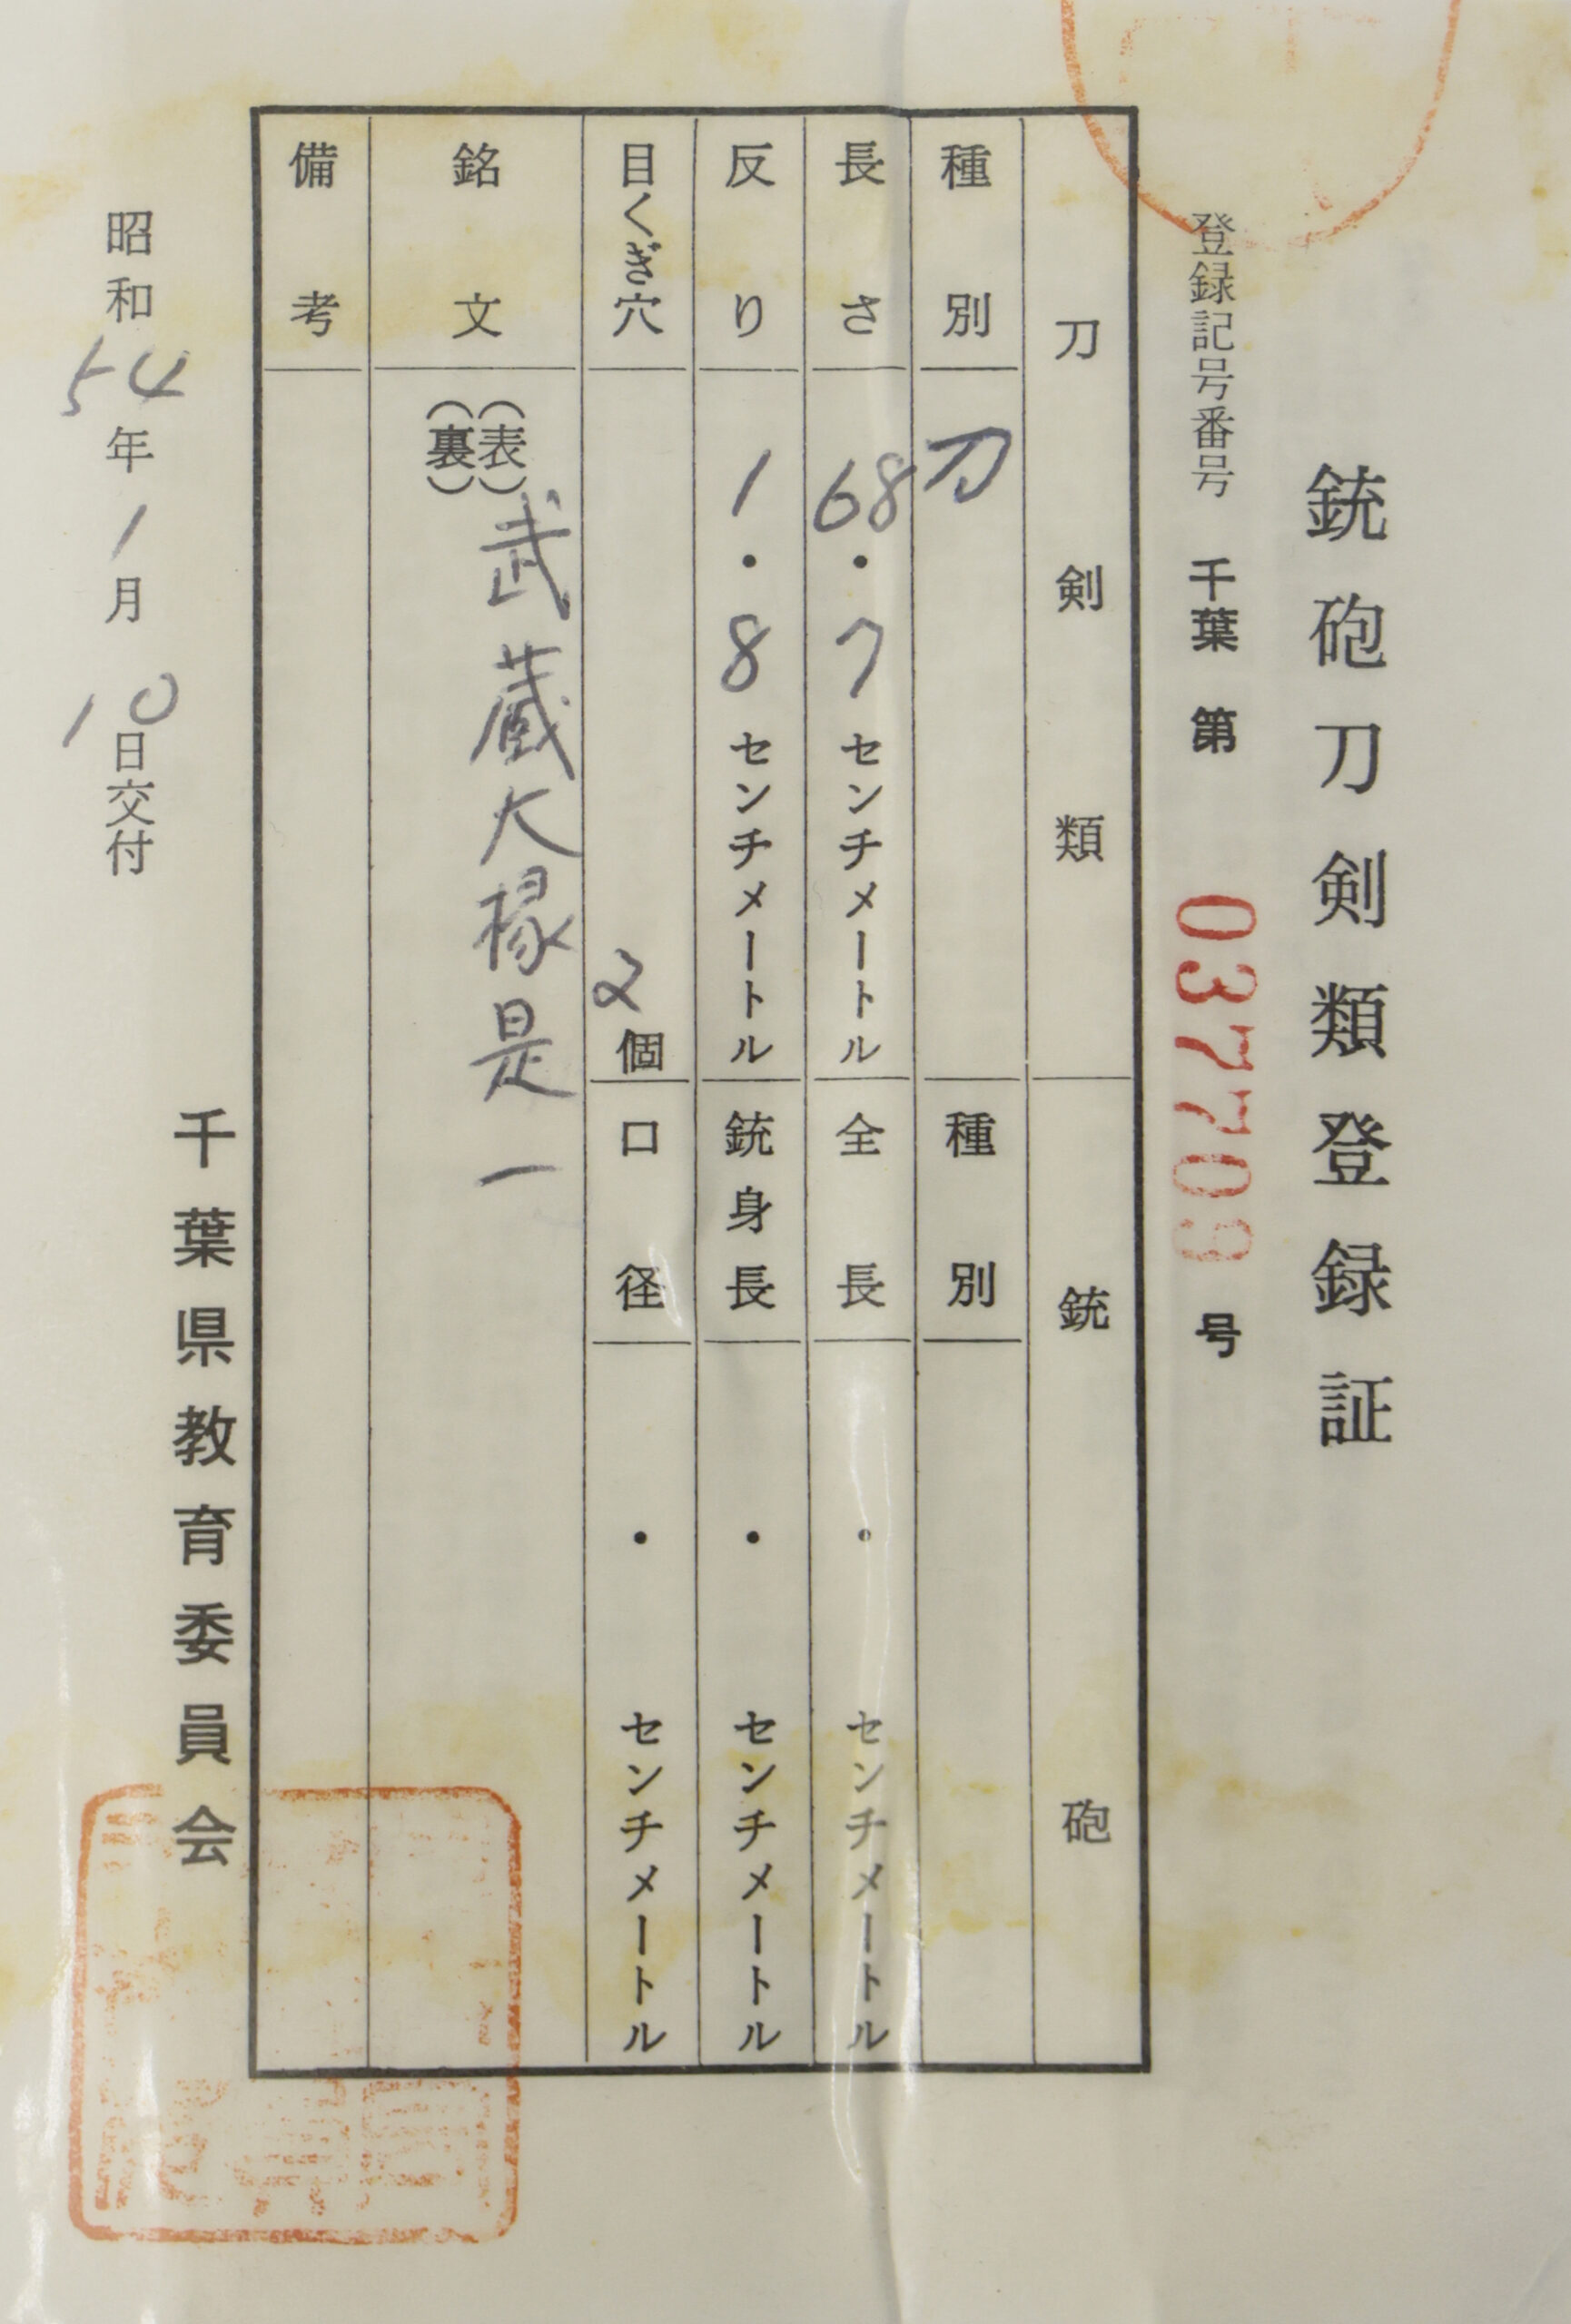 銃砲刀剣類登録証
登録記号番号 千葉 第 037709 号
刀剣類
銃砲
種別 刀
種別
長さ 68・7センチメートル
全長 ・ センチメートル
反り 1・8センチメートル
銃身長 ・ センチメートル
目くぎ穴 2個
口径 ・ センチメートル
銘文 (表) 武蔵大掾是一
(裏)
備考
昭和54年1月10日交付
千葉県教育委員会